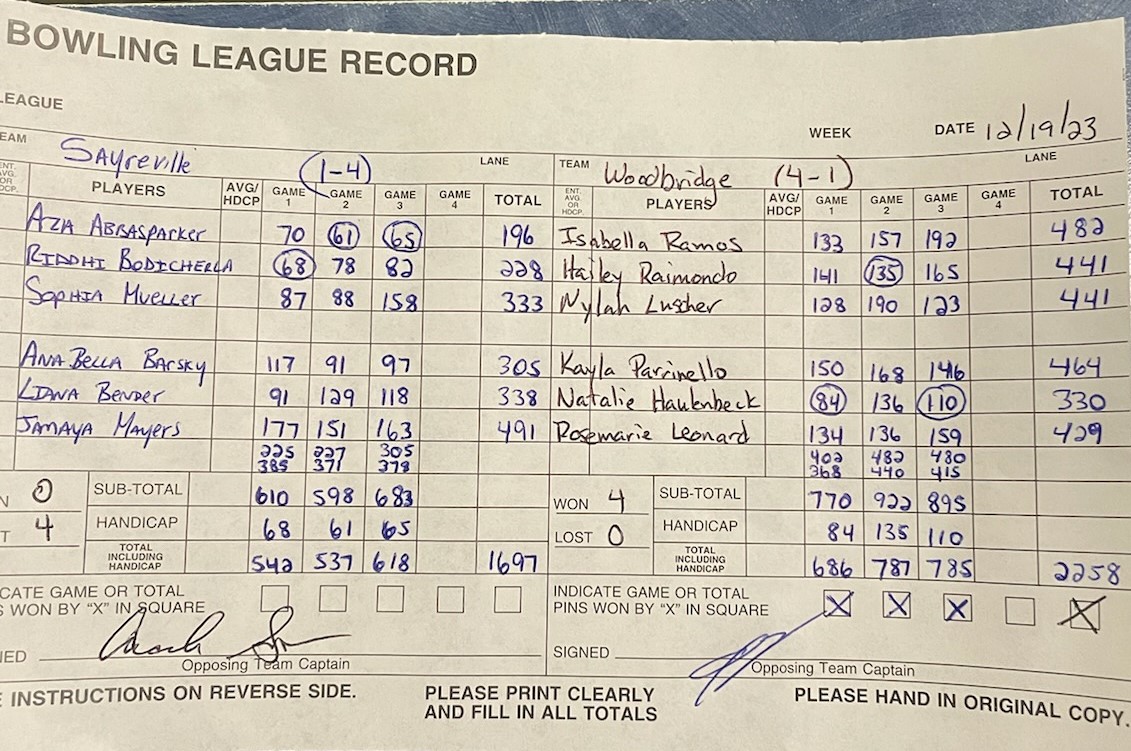 BOWLING LEAGUE RECORD
LEAGUE
WEEK DATE 12/19/23
TEAM Sayreville (1-4) LANE TEAM Woodbridge (4-1) LANE
ENT. AVG. OR HDCP. PLAYERS AVG/HDCP GAME 1 GAME 2 GAME 3 GAME 4 TOTAL ENT. AVG. OR HDCP. PLAYERS AVG/HDCP GAME 1 GAME 2 GAME 3 GAME 4 TOTAL
AZIA ABBASPARKER 70 61 65 196 Isabella Ramos 133 157 192 482
RIDDHI BODICHERLA 68 78 82 228 Hailey Raimondo 141 135 165 441
SOPHIA MUELLER 87 88 158 333 Nylah Luscher 128 190 123 441
ANA BELLA BARSKY 117 91 97 305 Kayla Parrinello 150 168 146 464
LIANA BENDER 91 129 118 338 Natalie Hautenbeck 84 136 110 330
JAMAYA MAYERS 177 151 163 491 Rosemarie Leonard 134 136 159 429
225 227 305 402 482 480
385 371 378 368 440 415
N 0 SUB-TOTAL 610 598 683 WON 4 SUB-TOTAL 770 922 895
T 4 HANDICAP 68 61 65 LOST 0 HANDICAP 84 135 110
TOTAL INCLUDING HANDICAP 542 537 618 1697 TOTAL INCLUDING HANDICAP 686 787 785 2258
CATE GAME OR TOTAL INDICATE GAME OR TOTAL
S WON BY "X" IN SQUARE PINS WON BY "X" IN SQUARE X X X X
NED SIGNED
Opposing Team Captain Opposing Team Captain
E INSTRUCTIONS ON REVERSE SIDE. PLEASE PRINT CLEARLY PLEASE HAND IN ORIGINAL COPY.
AND FILL IN ALL TOTALS